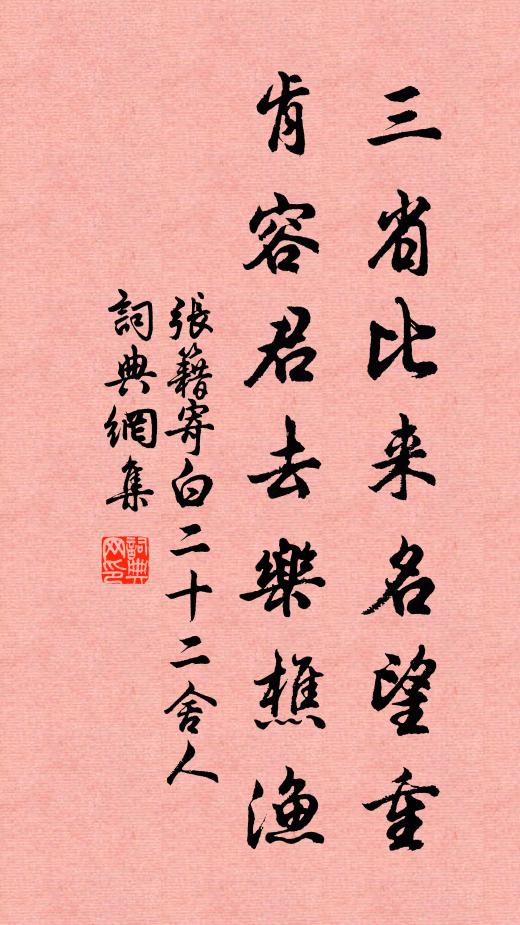 三省比来名望重
肯容君去樂樵漁
張籍寄白二十二舍人
詞典網集
詞典網印